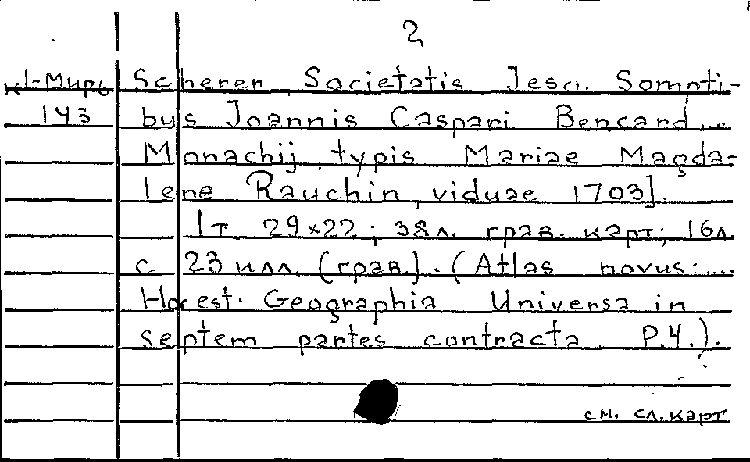 2
к1-Мирь Scherer Societatis Jesu. Sompti-
143 bus Joannis Caspari Bencard...
Monachij typis Mariae Magda-
lene Rauchin, viduae 1703].
1т. 29×22; 38л. грав. карт; 16л.
с 23 илл. (грав.). (Atlas novus: ...
Hoc est. Geographia Universa in
septem partes contracta. P.4.).
см. сл. карт